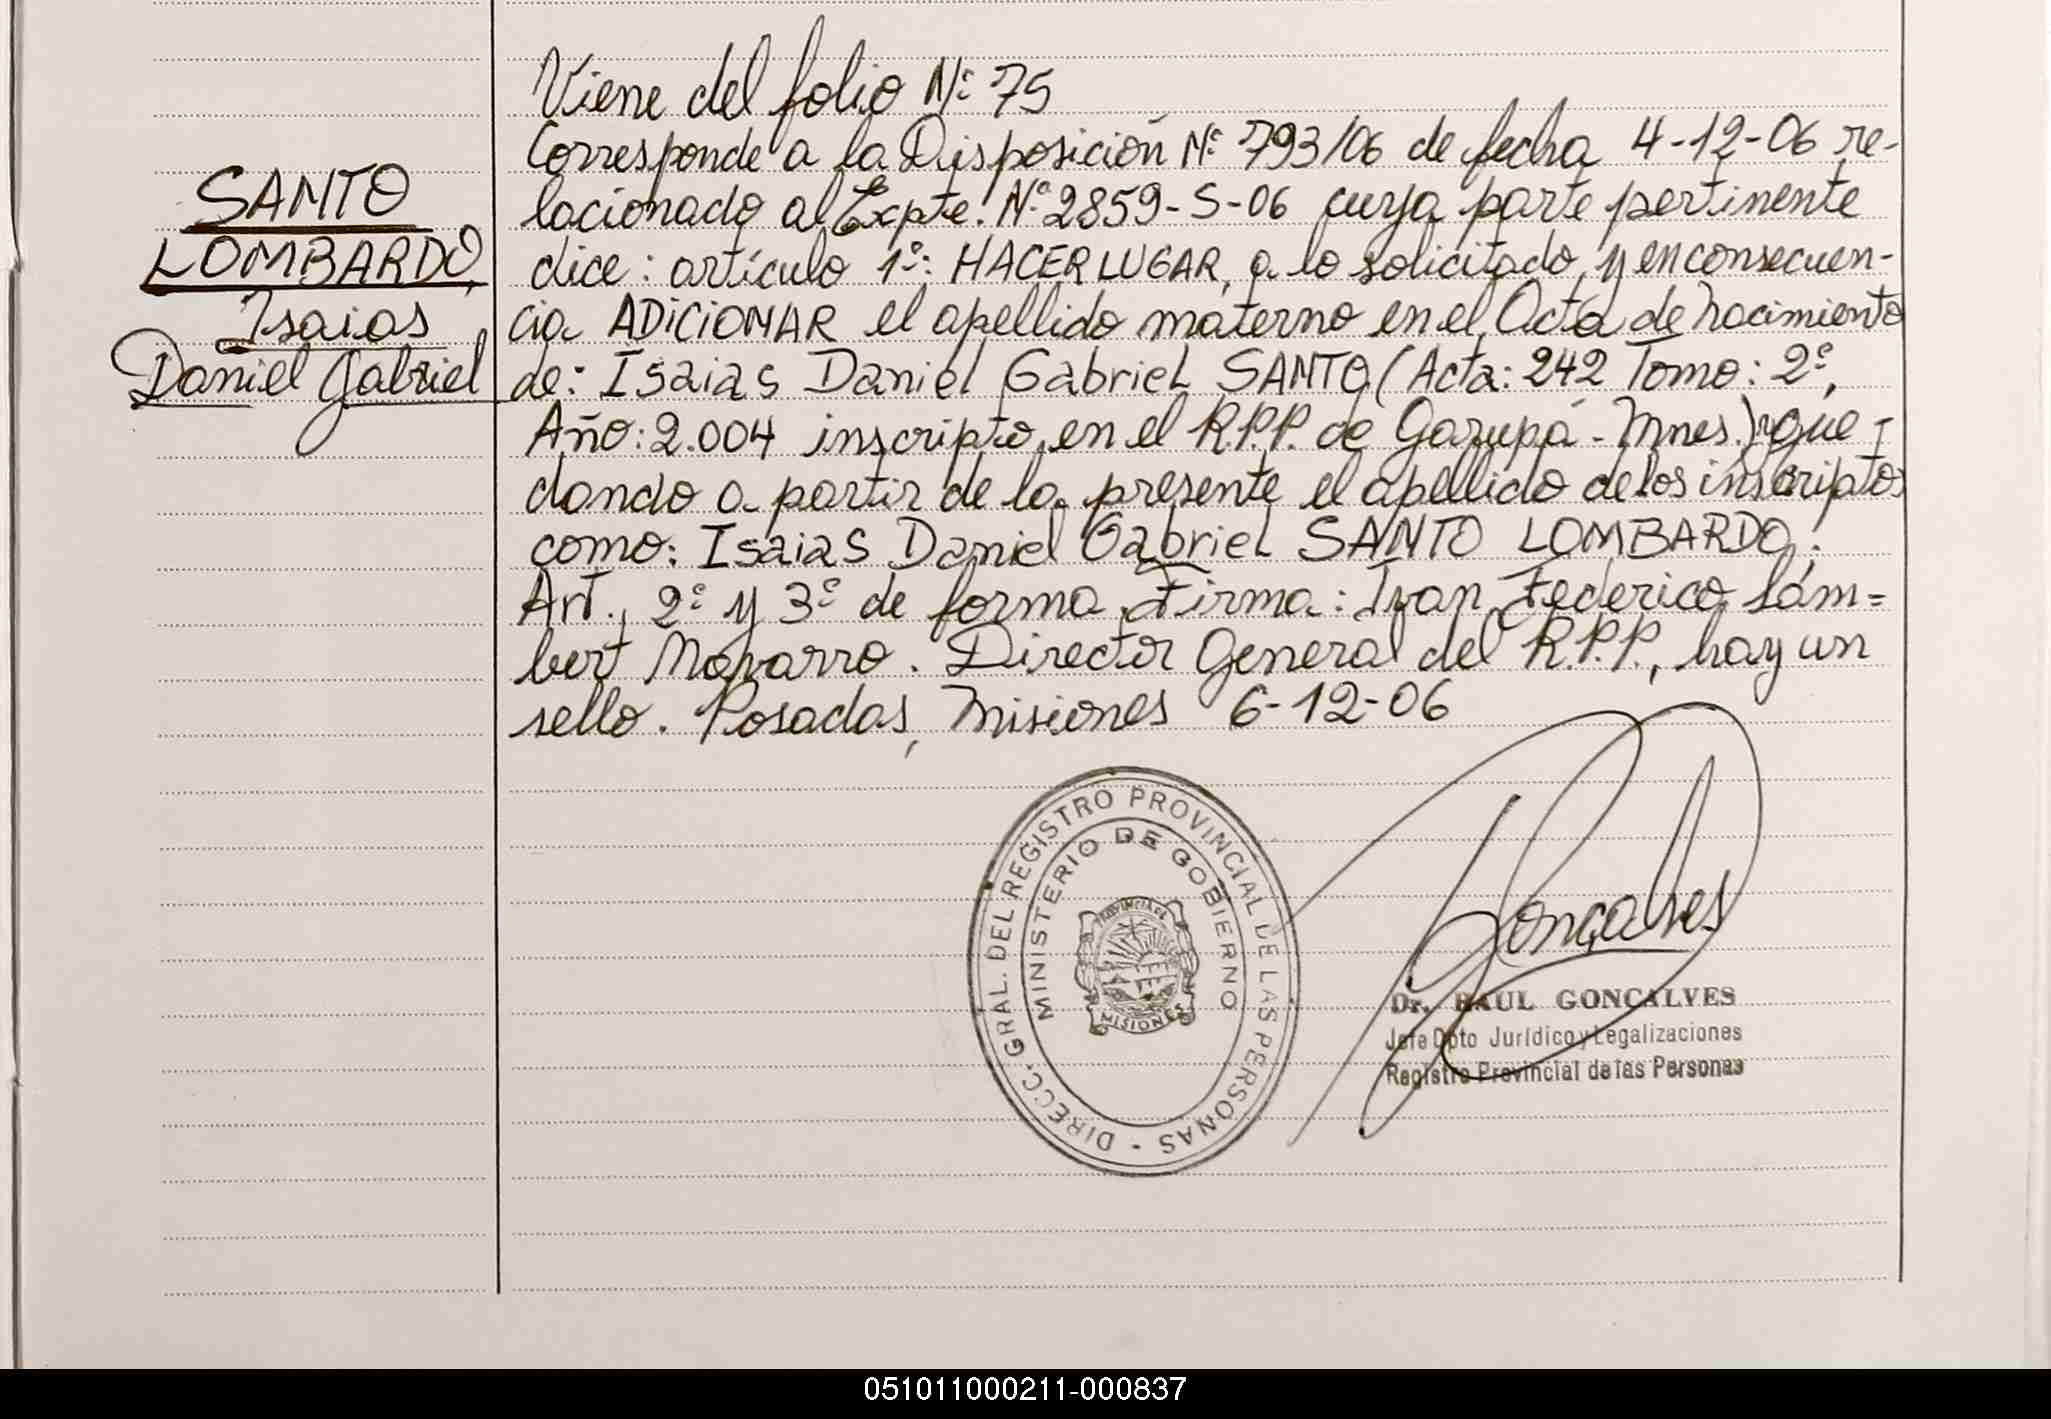 Viene del folio Nº 75
Corresponde a la Disposición Nº 793/06 de fecha 4-12-06 re-
SANTO
lacionado al Expte. Nº 2859-S-06 cuya parte pertinente
LOMBARDO,
dice: artículo 1º: HACER LUGAR, a lo solicitado, y en consecuen-
Isaias
cia ADICIONAR el apellido materno en el Acta de nacimiento
Daniel Gabriel
de: Isaias Daniel Gabriel SANTO (Acta: 242 Tomo: 2º,
Año: 2.004 inscripto en el R.P.P. de Garupá - Mnes.) que-
dando a partir de la presente el apellido de los inscriptos
como: Isaias Daniel Gabriel SANTO LOMBARDO.
Art. 2º y 3º de forma. Firma: Ivan Federico Lám=
bert Navarro. Director General del R.P.P., hay un
sello. Posadas, Misiones 6-12-06
DIRECC. GRAL. DEL REGISTRO PROVINCIAL DE LAS PERSONAS -
MINISTERIO DE GOBIERNO
PROVINCIA DE
MISIONES
Goncalves
Dr. RAUL GONCALVES
Jefe Dpto Jurídico y Legalizaciones
Registro Provincial de las Personas
051011000211-000837